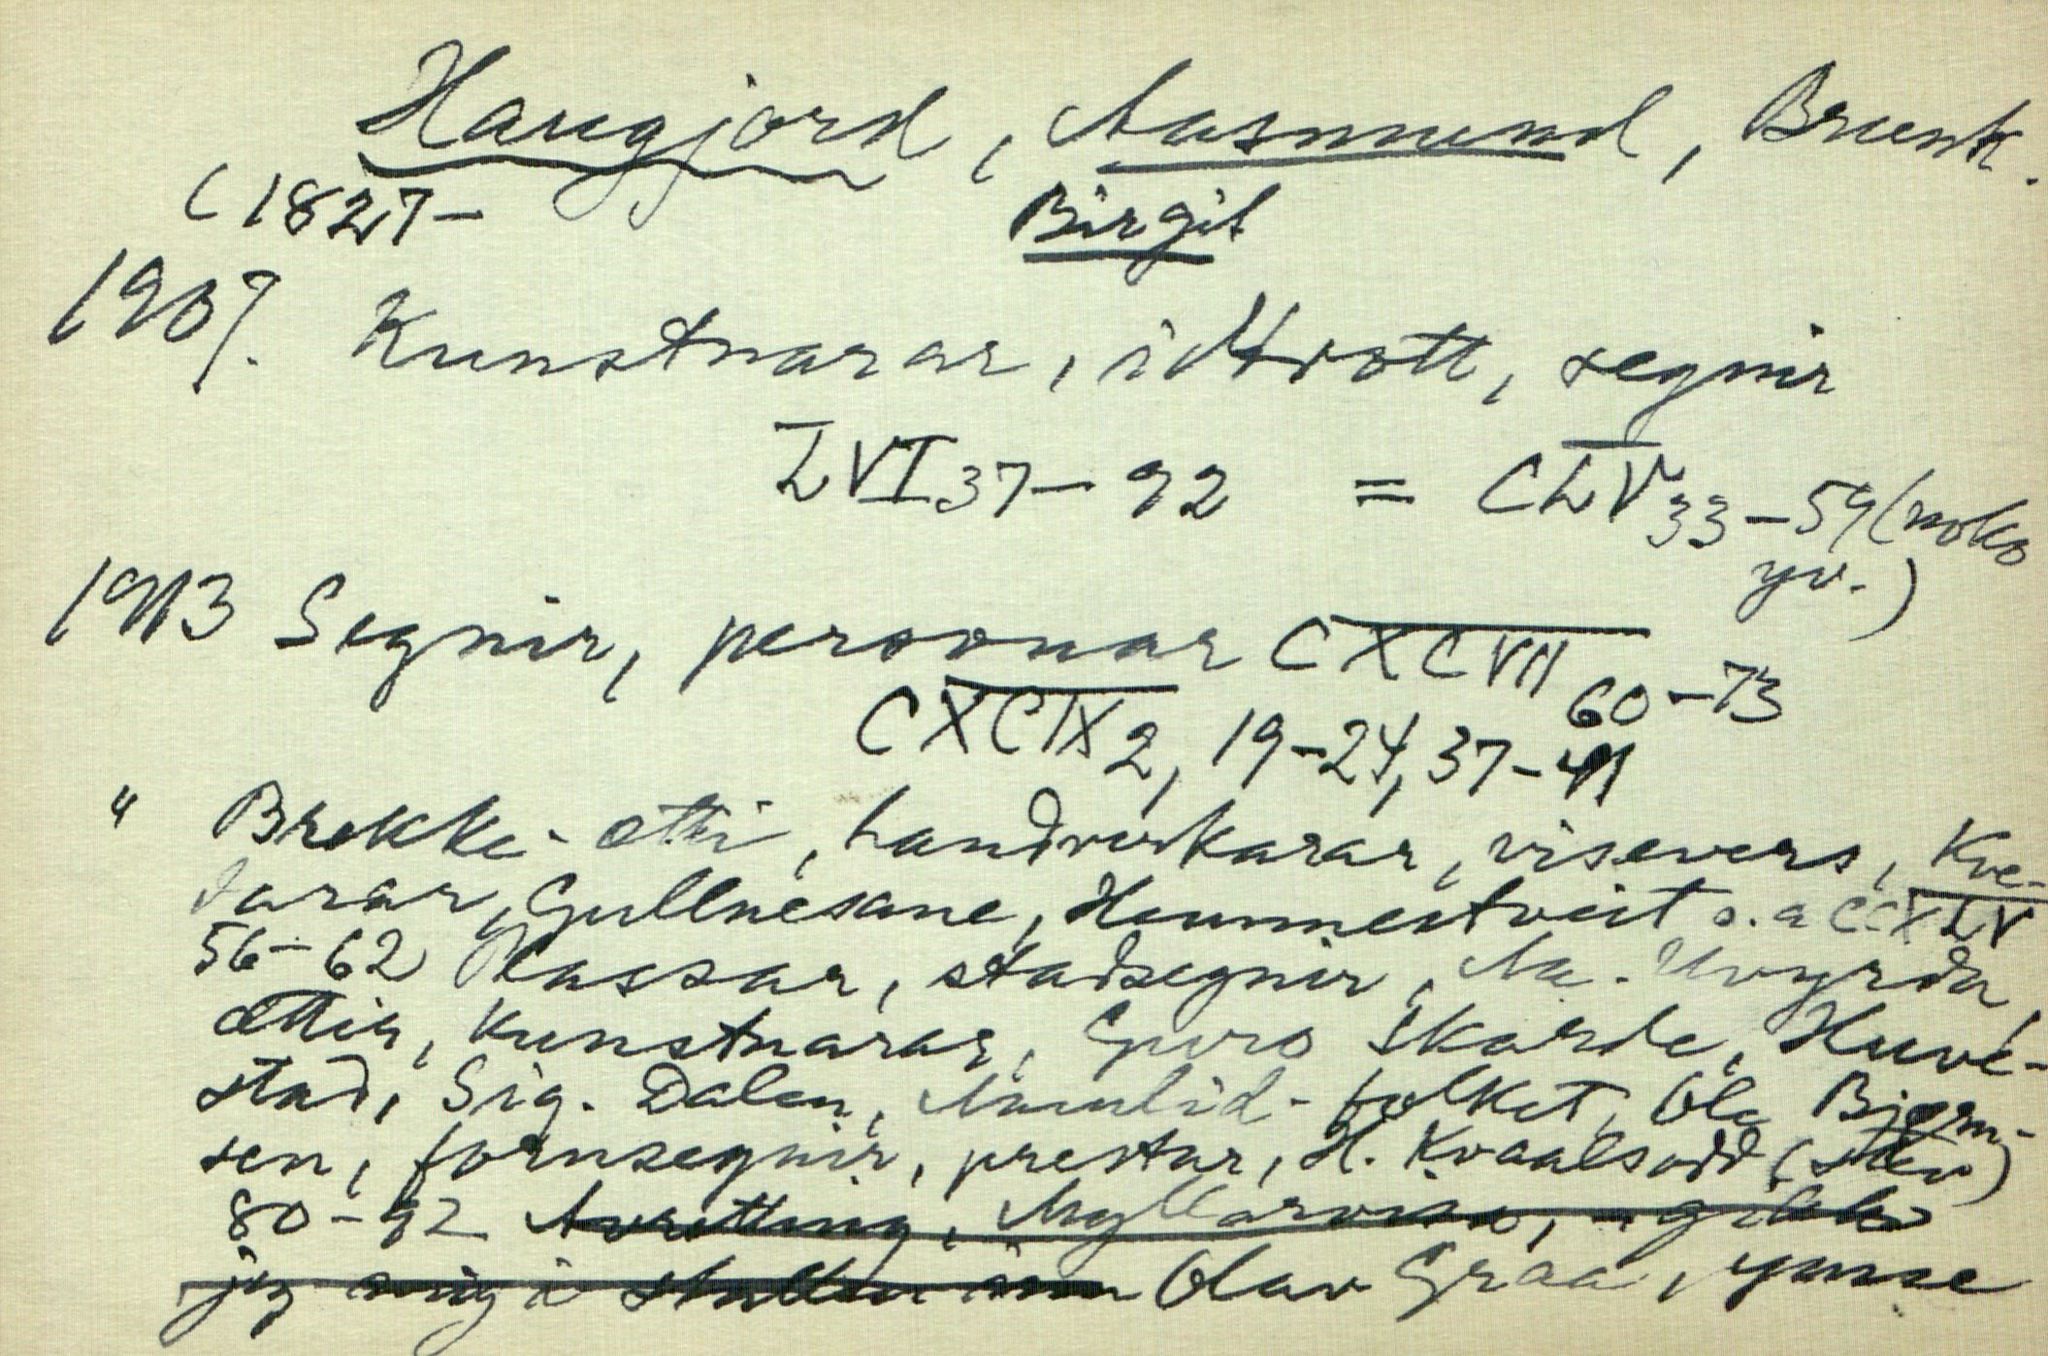 Haugjord, Aasmund, Brunk.
(1827- Birgit
1907. Kunstnarar, idtrott, segnir
LVI 37-92 = CLV 33-59 (noko
yv.)
1913 Segnir, personar CXCVII 60-73
CXCIX 2, 19-24, 37-41
" Brekke-ætti, handverkarar, visevers, Kve-
darar, Gullnesane, Hommestveit o.a CCXLV
56-62 Plassar, stadsegnir, Aa.
ættir, kunstnarar, Guro Skarde, Huve-
stad, Sig. Dalen, Aamlid-folket, Ola Bjørn-
sen, fornsegnir, prestar, H. Kvaalsodd (stev)
80-92 Avretting, Myllarvisa, - gikk
jeg meg i Olav Graa, ymse